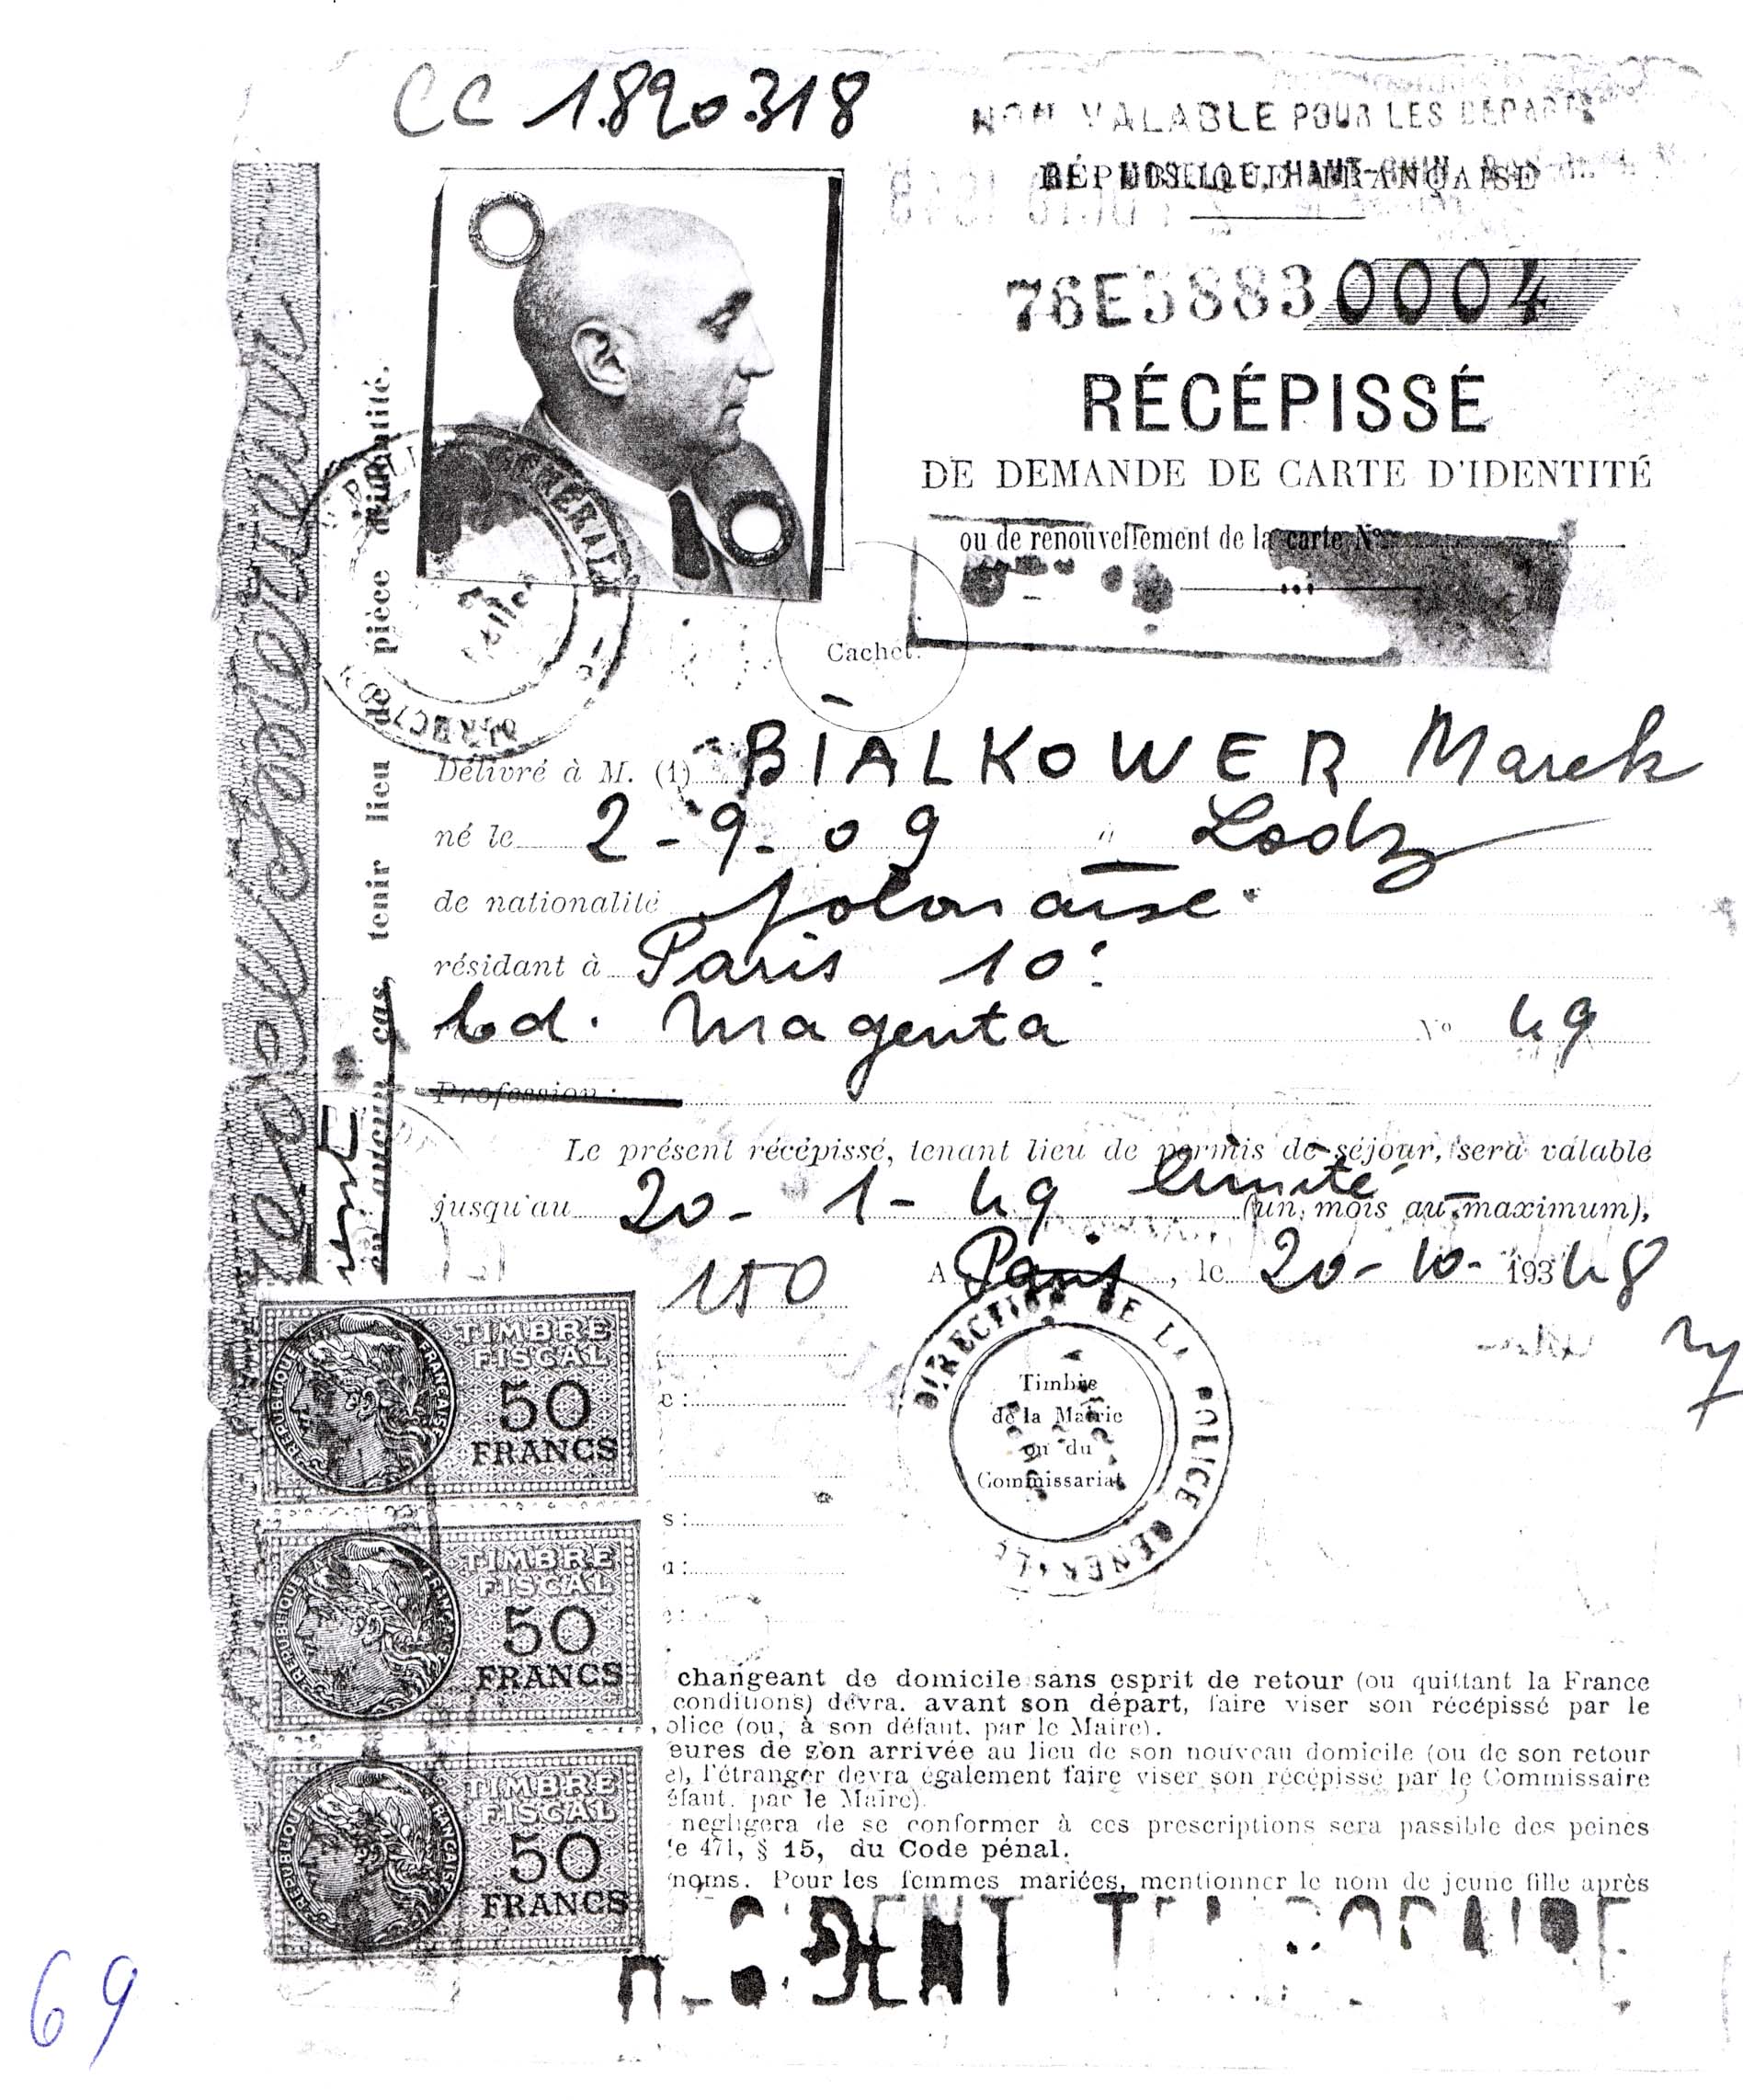 CC 1.820.318
NON VALABLE POUR LES DÉPART
RÉPUBLIQUE FRANÇAISE
76E58830004
RÉCÉPISSÉ
DE DEMANDE DE CARTE D'IDENTITÉ
ou de renouvellement de la carte N°
Cachet.
en aucun cas, tenir lieu de pièce d'identité.
Délivré à M. (1) BIALKOWER Marek
né le 2-9-09 à Lodz
de nationalité polonaise
résidant à Paris 10e
bd. Magenta N° 49
Profession :
Le présent récépissé, tenant lieu de permis de séjour, sera valable
jusqu'au 20-1-49 limité (un mois au maximum),
150
A Paris, le 20-10-193 48
DIRECTION DE LA POLICE GENERALE
Timbre
de la Mairie
ou du
Commissariat
TIMBRE
FISCAL
50
FRANCS
RÉPUBLIQUE FRANÇAISE
TIMBRE
FISCAL
50
FRANCS
RÉPUBLIQUE FRANÇAISE
TIMBRE
FISCAL
50
FRANCS
RÉPUBLIQUE FRANÇAISE
changeant de domicile sans esprit de retour (ou quittant la France
conditions) devra, avant son départ, faire viser son récépissé par le
olice (ou, à son défaut, par le Maire).
eures de son arrivée au lieu de son nouveau domicile (ou de son retour
e), l'étranger devra également faire viser son récépissé par le Commissaire
éfaut, par le Maire).
negligera de se conformer à ces prescriptions sera passible des peines
e 471, § 15, du Code pénal.
noms. Pour les femmes mariées, mentionner le nom de jeune fille après
RESIDENT TEMPORAIRE
69